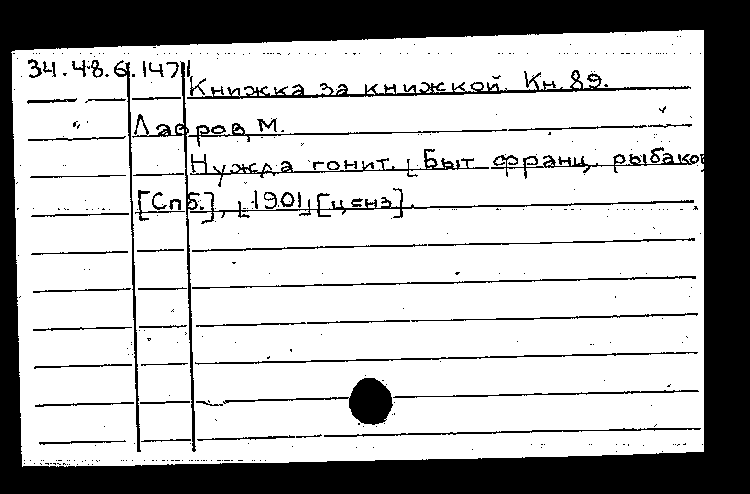 34.48.6.147
Книжка за книжкой. Кн. 89.
Лавров, М.
Нужда гонит. Быт франц. рыбаков
[Спб.], 1901 [ценз].